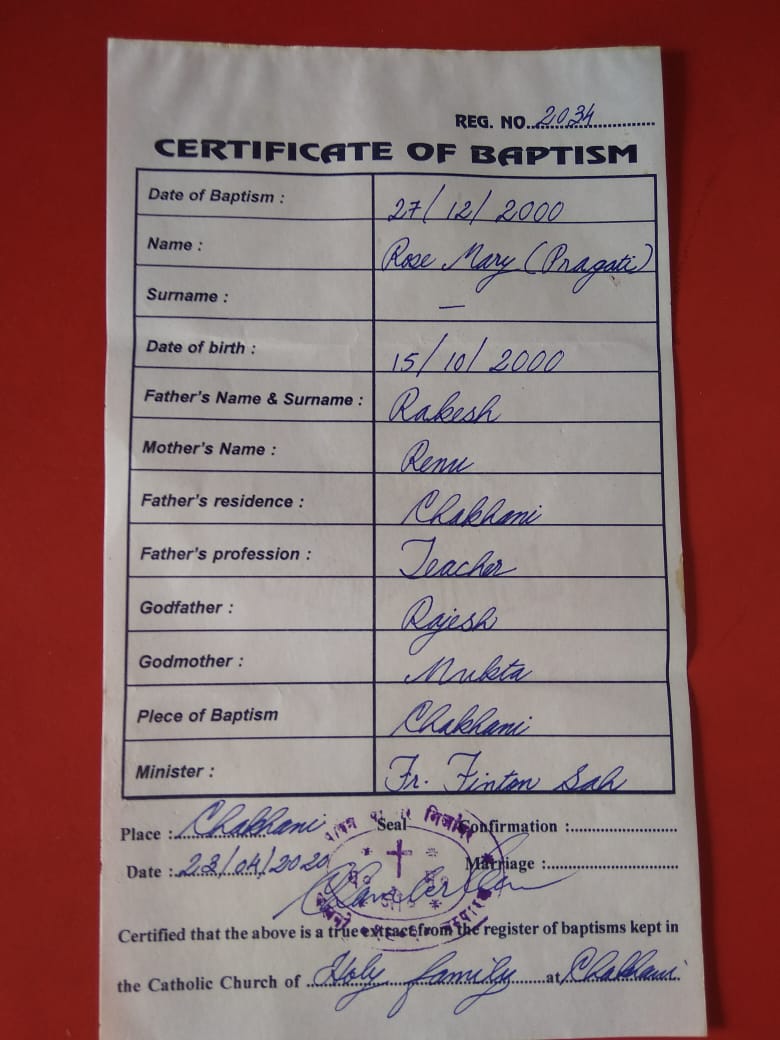 REG. NO. 2034
CERTIFICATE OF BAPTISM
Date of Baptism : 27/12/2000
Name : Rose Mary (Pragati)
Surname : —
Date of birth : 15/10/2000
Father's Name & Surname : Rakesh
Mother's Name : Renu
Father's residence : Chakhani
Father's profession : Teacher
Godfather : Rajesh
Godmother : Mukta
Plece of Baptism Chakhani
Minister : Fr. Finton Sah
Place : Chakhani Seal Confirmation :
Date : 23/04/2020 Marriage :
Certified that the above is a true extract from the register of baptisms kept in
the Catholic Church of Holy family at Chakhani